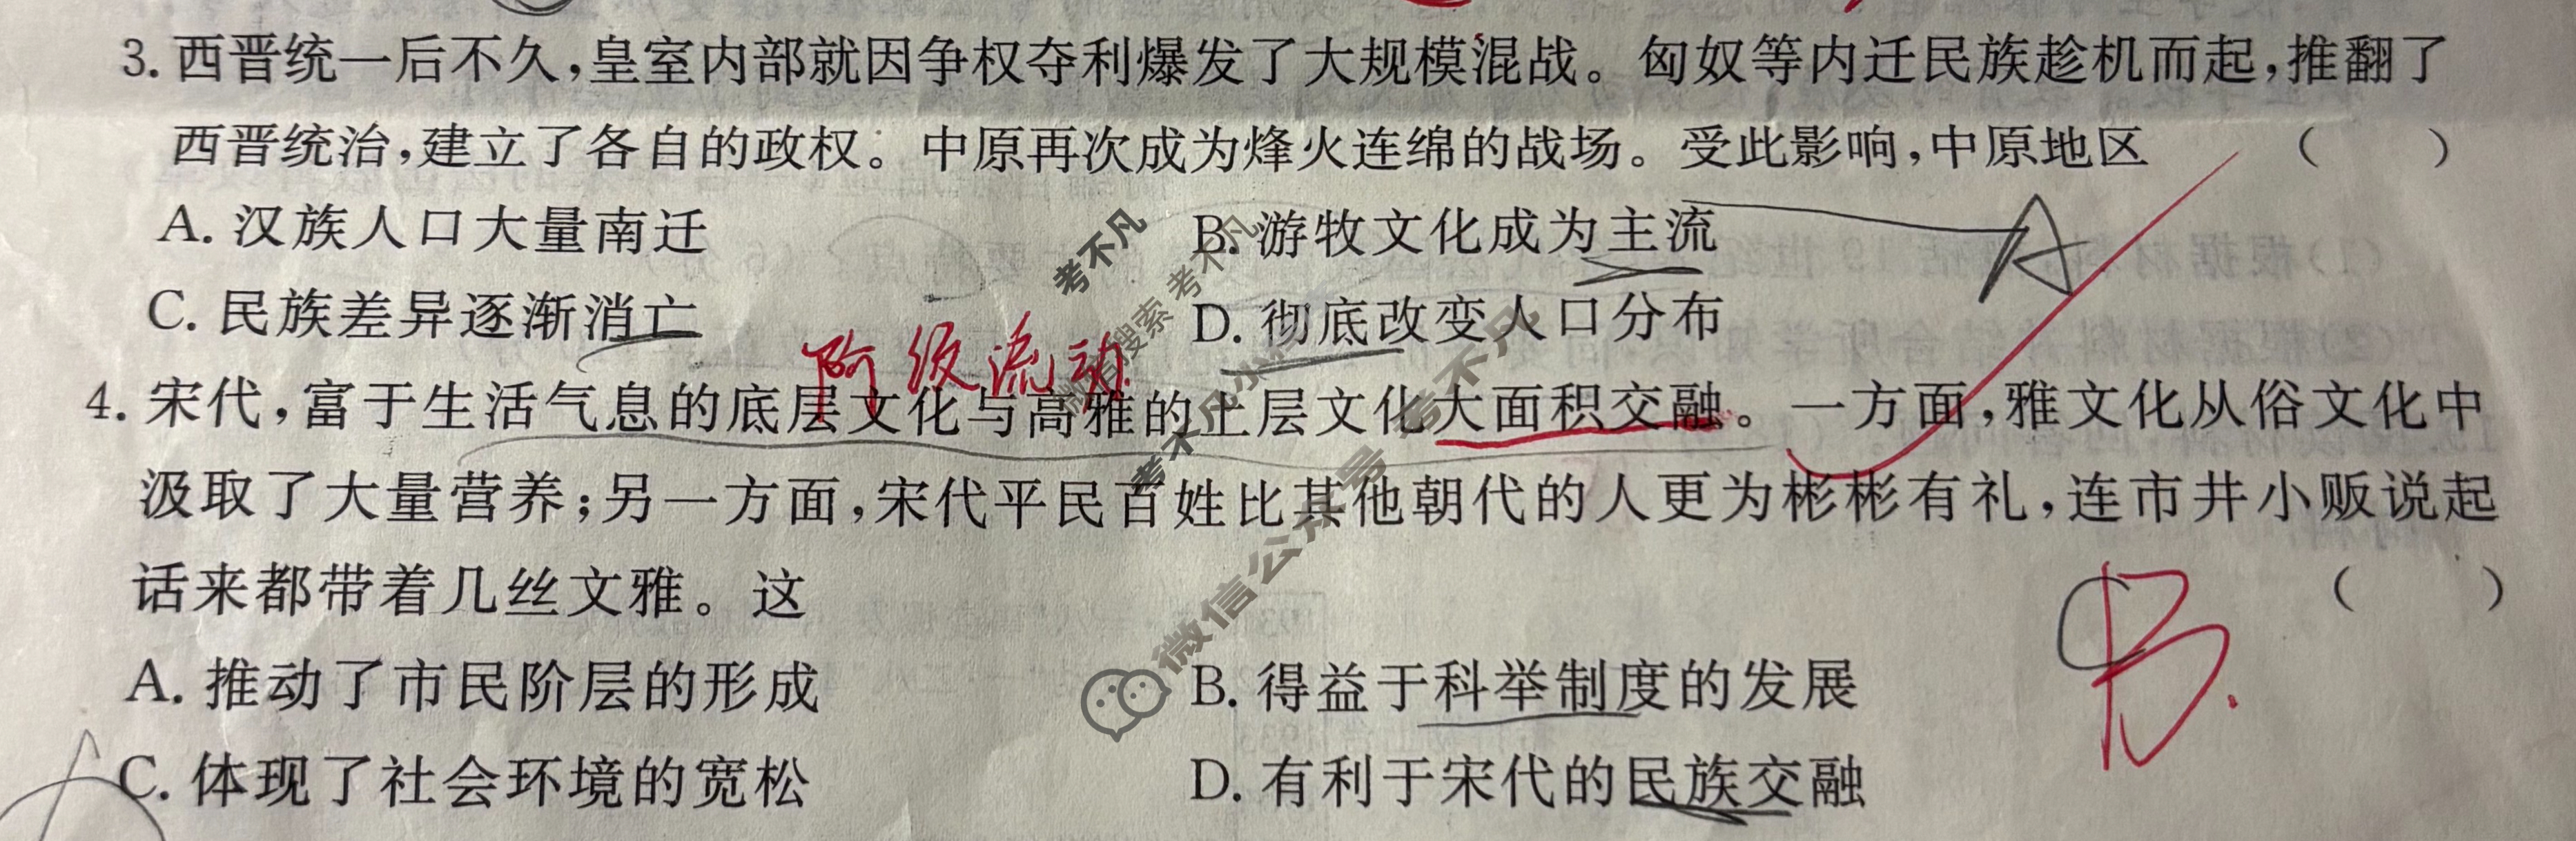 3. 西晋统一后不久，皇室内部就因争权夺利爆发了大规模混战。匈奴等内迁民族趁机而起，推翻了
西晋统治，建立了各自的政权。中原再次成为烽火连绵的战场。受此影响，中原地区（　　）
A. 汉族人口大量南迁 B. 游牧文化成为主流
A
C. 民族差异逐渐消亡 D. 彻底改变人口分布
阶级流动
4. 宋代，富于生活气息的底层文化与高雅的上层文化大面积交融。一方面，雅文化从俗文化中
汲取了大量营养；另一方面，宋代平民百姓比其他朝代的人更为彬彬有礼，连市井小贩说起
话来都带着几丝文雅。这（　　）
B.
A. 推动了市民阶层的形成 B. 得益于科举制度的发展
C. 体现了社会环境的宽松 D. 有利于宋代的民族交融
考不凡
微信搜索 考不凡
考不凡小程序
微信公众号 考不凡